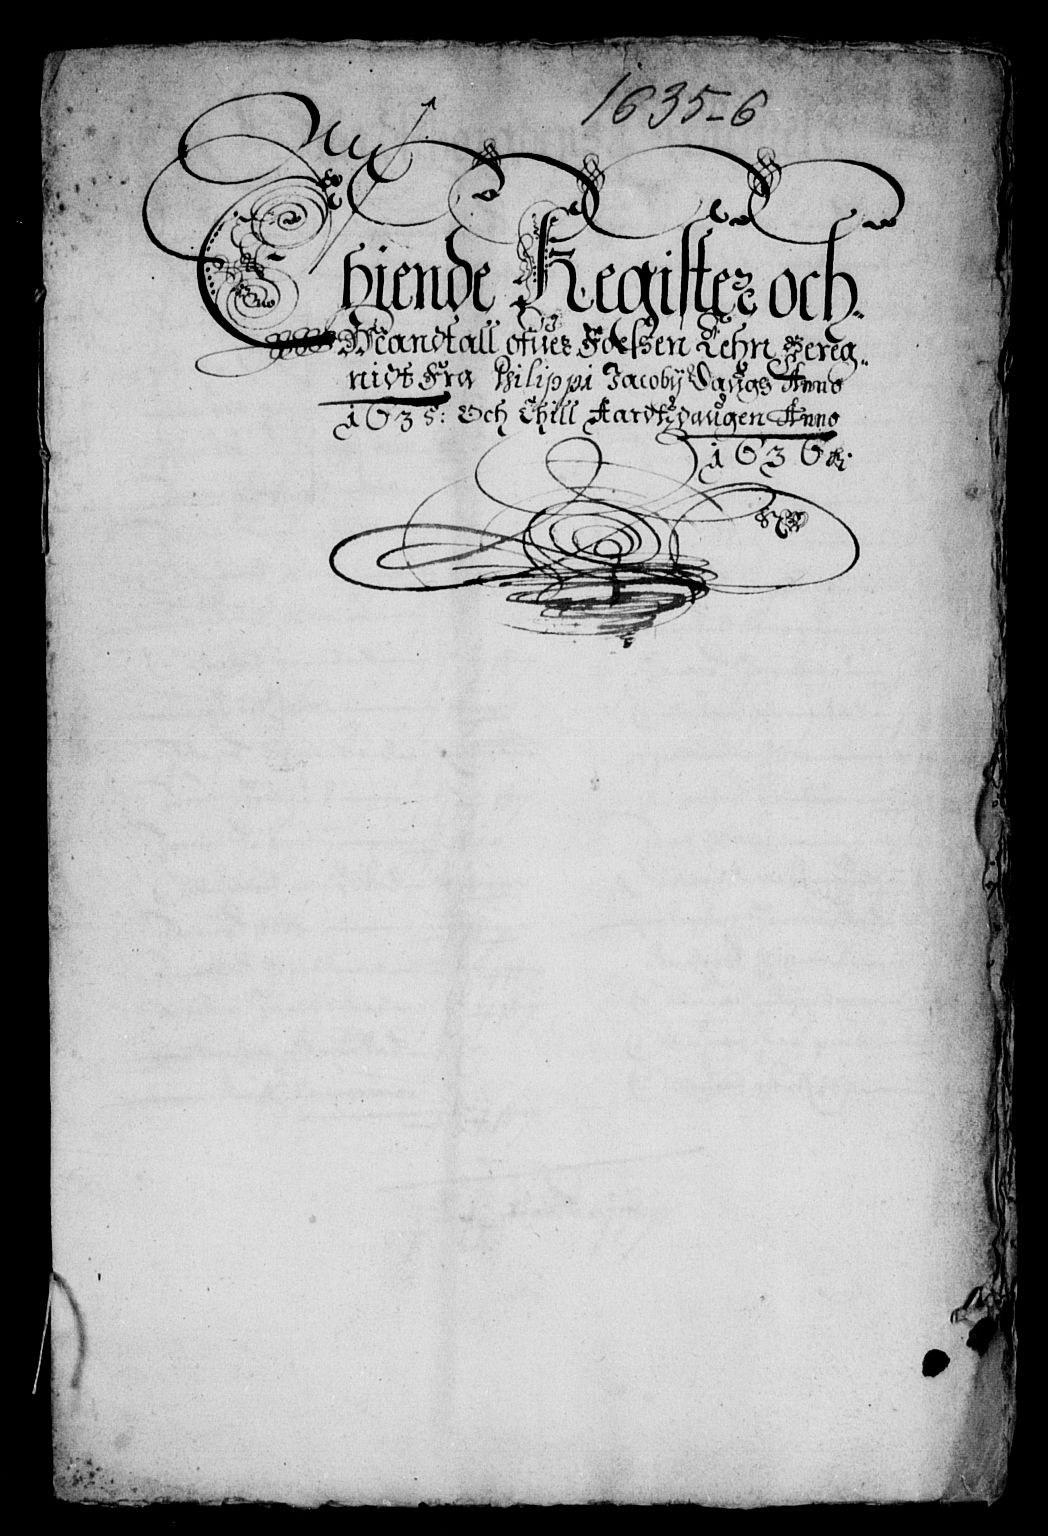 1635-6
Thiende Register och
Mandtall ofuer Foeßen Lehn Bereg-
nidt Fra Philippi Jacobij Daugs Anno
1635: Och Thill Aardtzdaugen Anno
1636